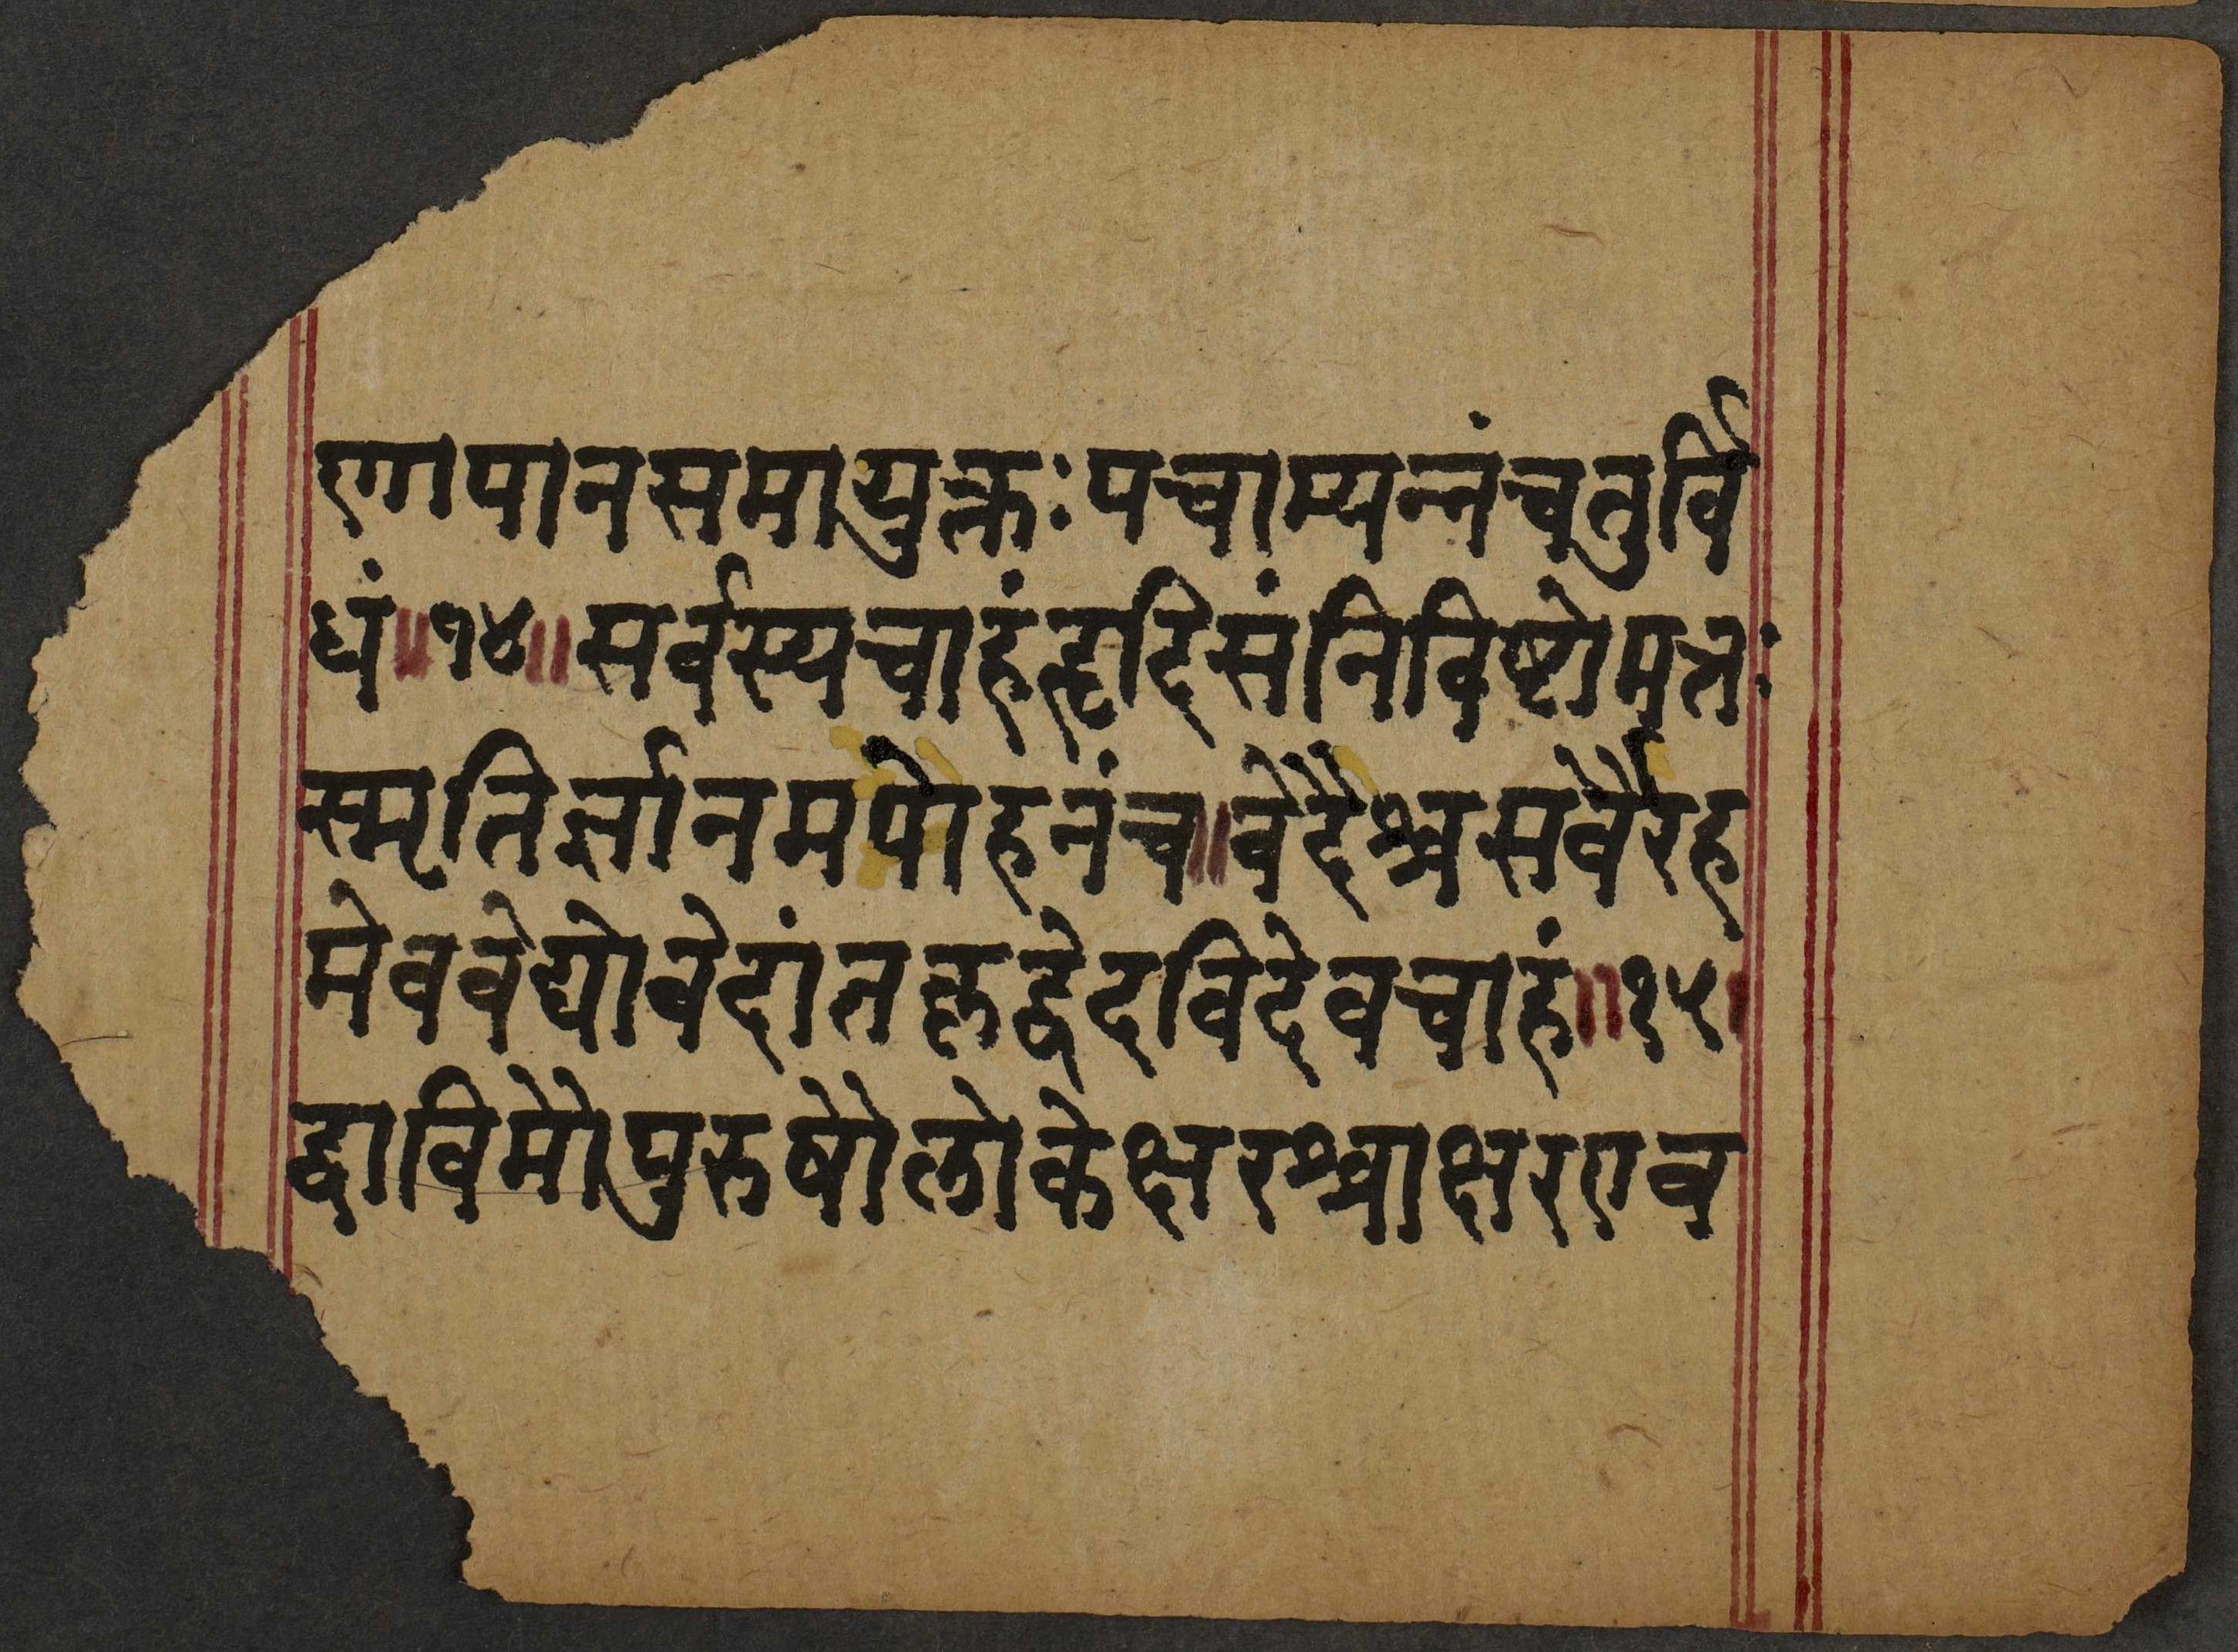 णापानसमायुक्तः पचाम्यन्नं चतुर्वि
धं॥१४॥ सर्वस्य चाहं हृदि संनिविष्टो मत्तः
स्मृतिर्ज्ञानमपोहनं च॥ वेदैश्च सर्वैरह
मेव वेद्यो वेदांतकृद्वेदविदेव चाहं॥१५॥
द्वाविमौ पुरुषौ लोके क्षरश्चाक्षर एव